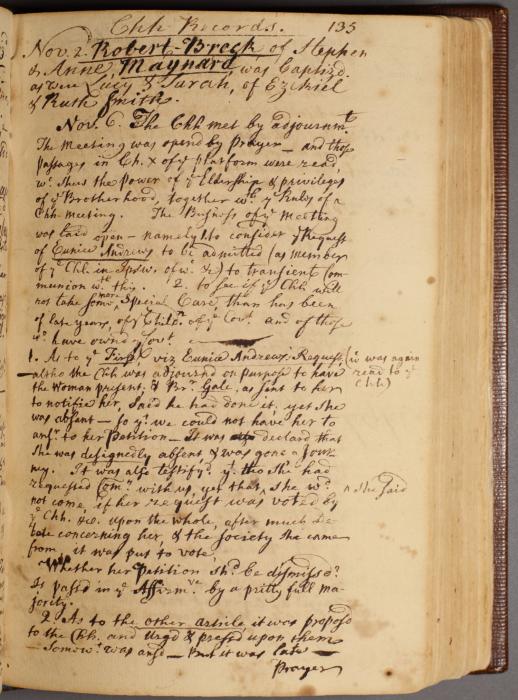 Chh Records. 135
Nov. 2. Robert-Breck of Stephen
& Anne Maynard was Baptizd.
as were Lucy & Sarah, of Ezekiel
& Ruth Smith.
Nov. 6. The Chh met by adjournmt
The meeting was opend by Prayer — and those
passages in Ch. X of ye platform were read,
wc shews the Power of ye Eldership & privileges
of ye Brotherhood, together wth ye Rules of a
Chh-meeting. The Business of ye Meeting
was laid open — namely 1. to consider ye Request
of Eunice Andrews to be admitted (as member
of ye Chh in of wc &c) to transient Com-
munion wth this. 2. to see if ye Chh will
not take some more Special Care, than has been
of late years, of ye Childn of ye Covt and of those
wo have ownd ye Covt.
1. As to ye First viz Eunice Andrews's Request, (it was again
— altho the Chh was adjournd on purpose to have read to ye
the Woman present; & Br. Gale, as sent to her Chh)
to notifie her, said he had done it, yet she
was absent — so yt we could not have her to
ansr to her Petition — It was declard that
she was designedly absent, & was gone a Jour-
ney. It was also testifyd yt tho she had
requested Comn with us, yet that, she wd ^ she said
not come, if her request was voted by
ye Chh. &c. upon the whole, after much de-
bate concerning her, & the society she came
from it was put to vote
Whether her Petition shd be dismissd?
It passd in ye Affirmve by a pretty full ma-
jority.
2. As to the other article it was propos'd
to the Chh. and Urgd & pressd upon them
— Somewt was ansd — But it was late —
Prayer